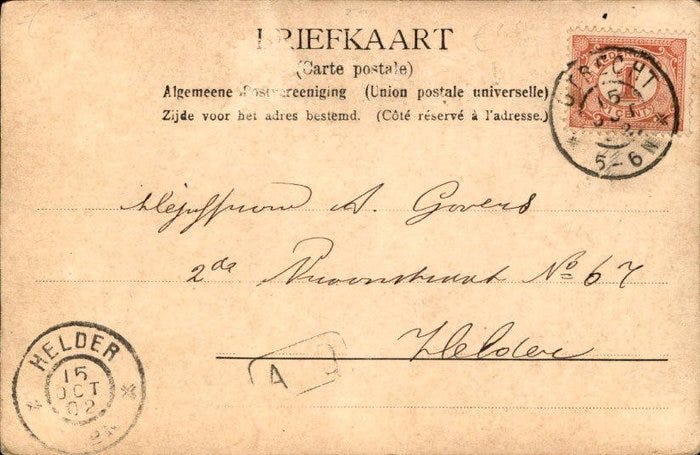 BRIEFKAART
(Carte postale)
Algemeene Postvereeniging (Union postale universelle)
Zijde voor het adres bestemd. (Côté réservé à l'adresse.)
1
CENT
UTRECHT
15
OCT
5-6 N
Mejuffrouw A. Govers
2de Vroonstraat No 67
Helder
HELDER
15
OCT
02
A